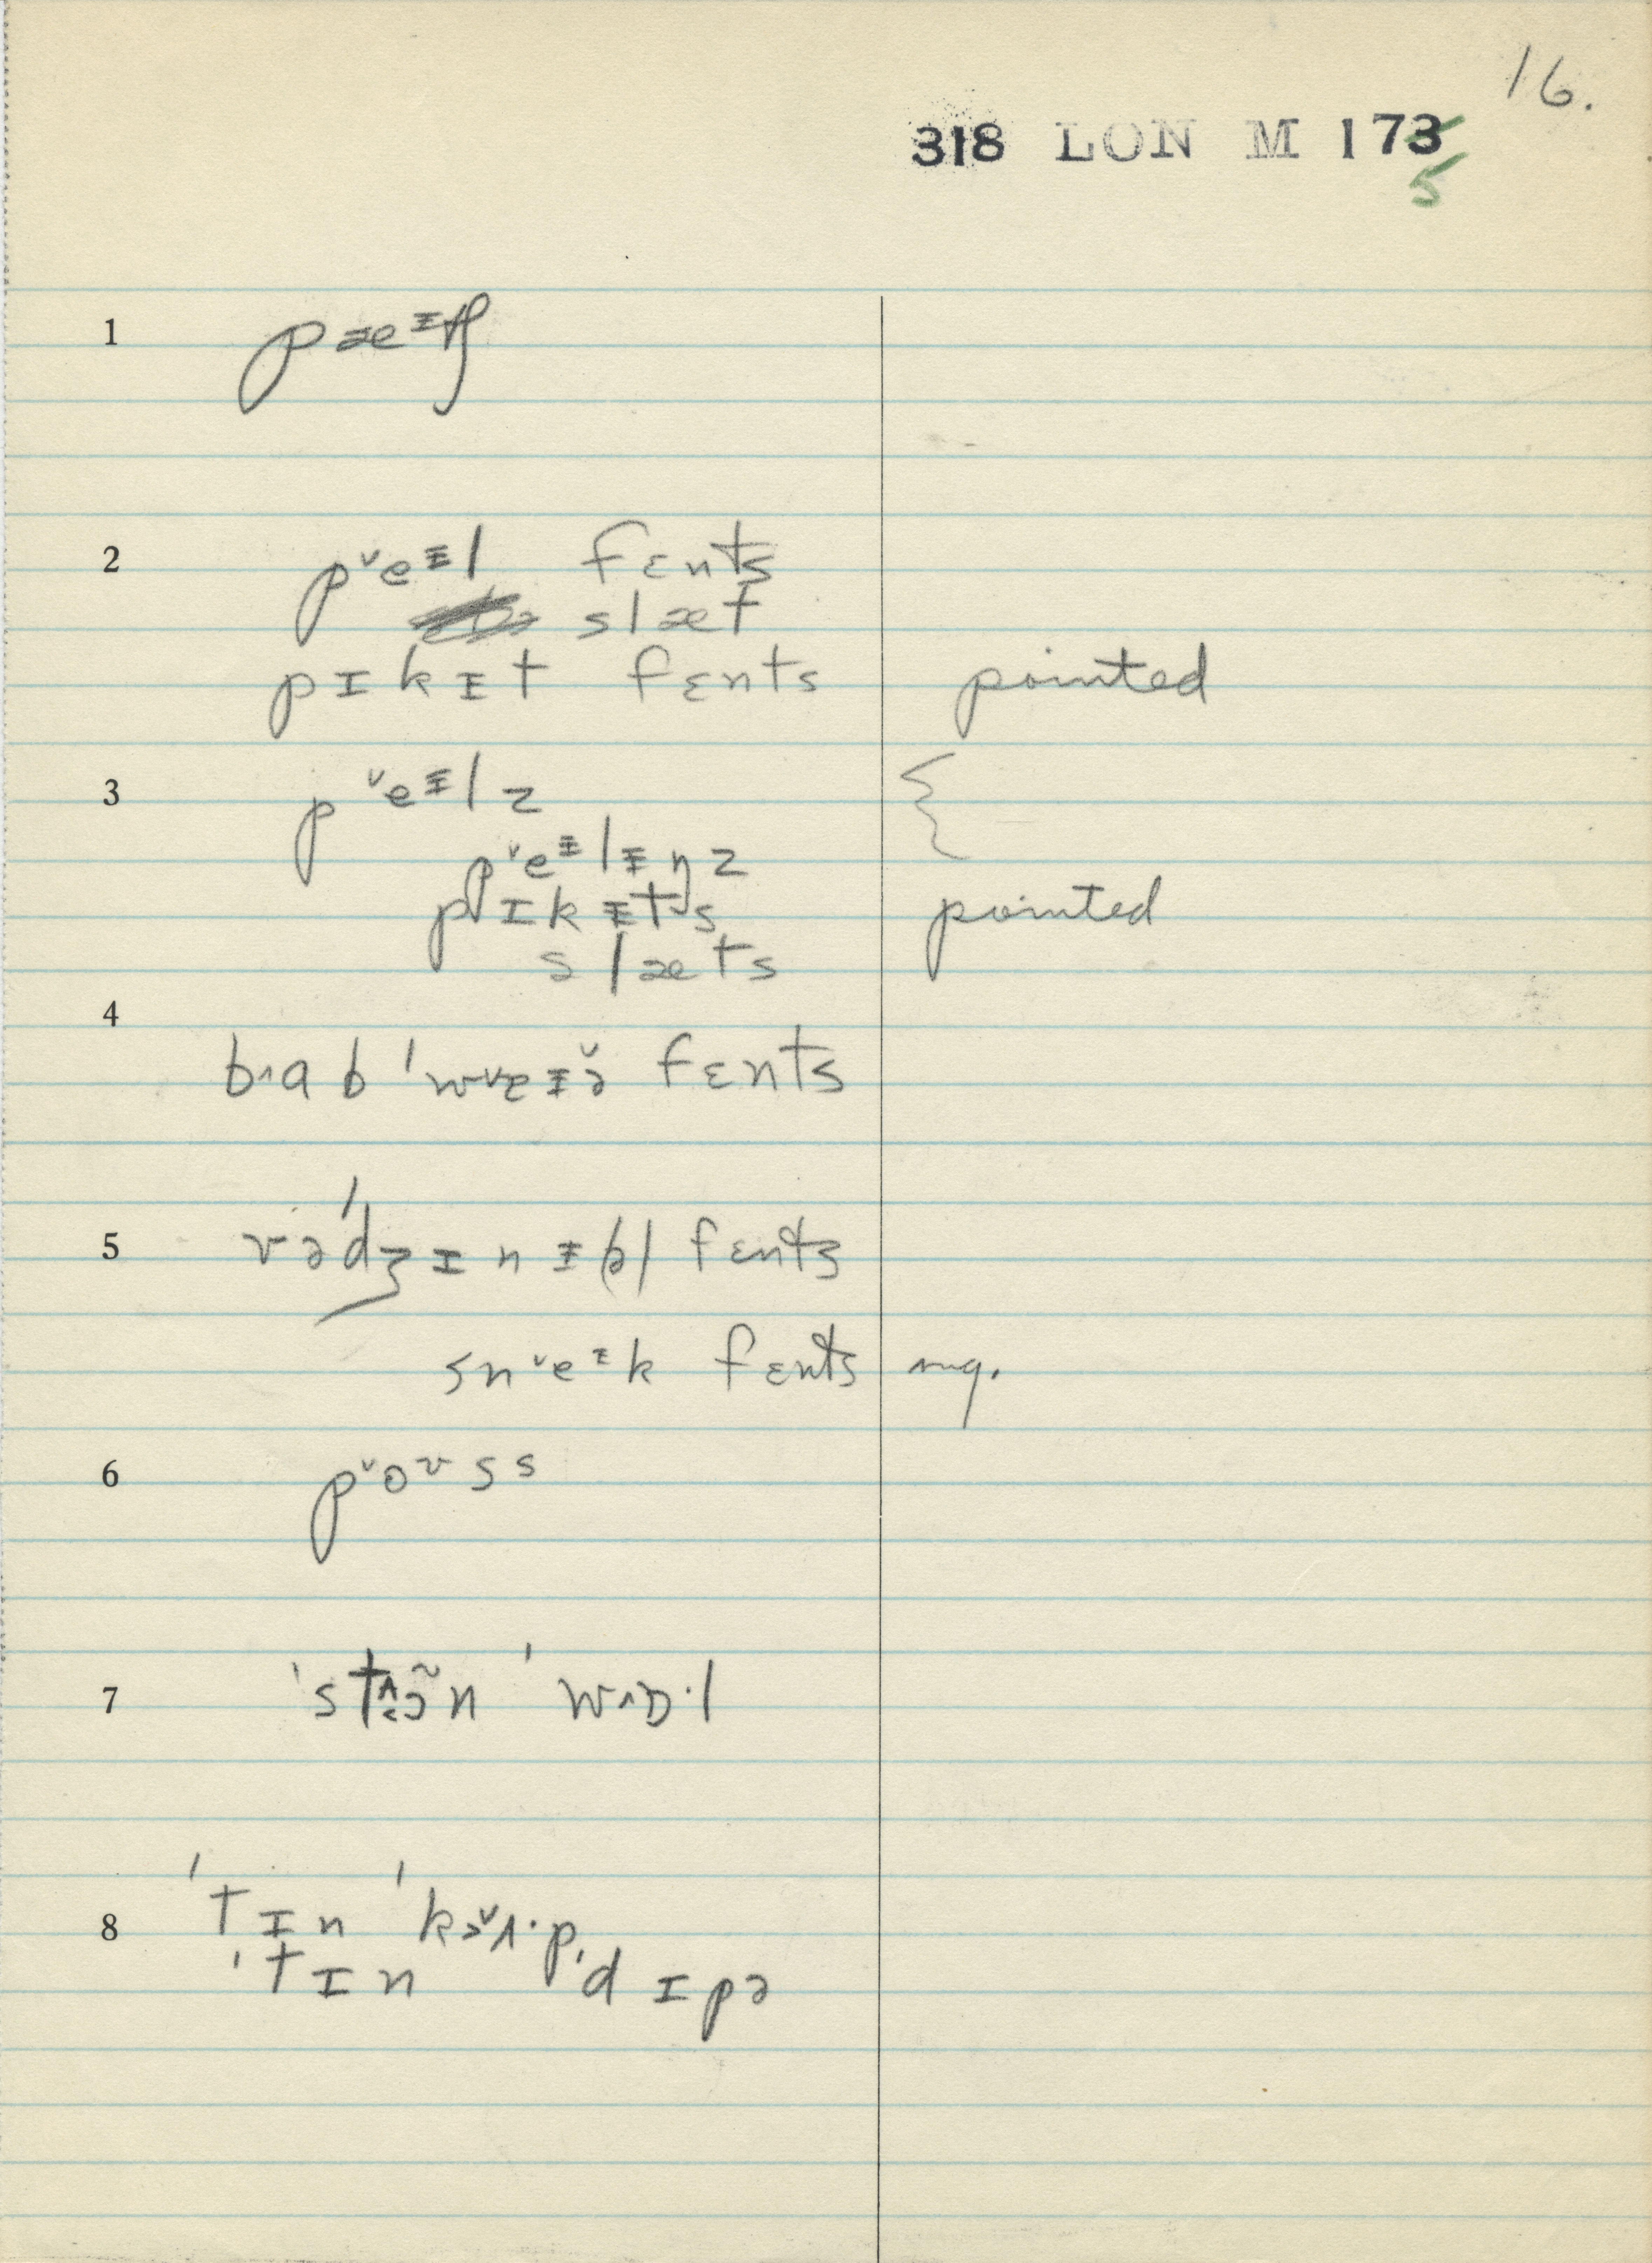 16.
318 LON M 173
5
1
2 p˅eᵻl fɛnts
slæt
pɪkᵻt fɛnts pointed
3 p˅eᵻlz {
p˅eᵻlᵻŋz
pɪkᵻts pointed
slæts
4
b˄ab ˈw˅eᵻə̆ fɛnts
5 vəˈdʒɪnᵻ(ə)l fɛnts
sn˅eᵻk fɛnts mg.
6 p˅oʊss
7 ˈst ˈw˄ɒ·l
8 ˈtɪn ˈkɜ˅ʌ·p
ˈtɪn ˈdɪpə